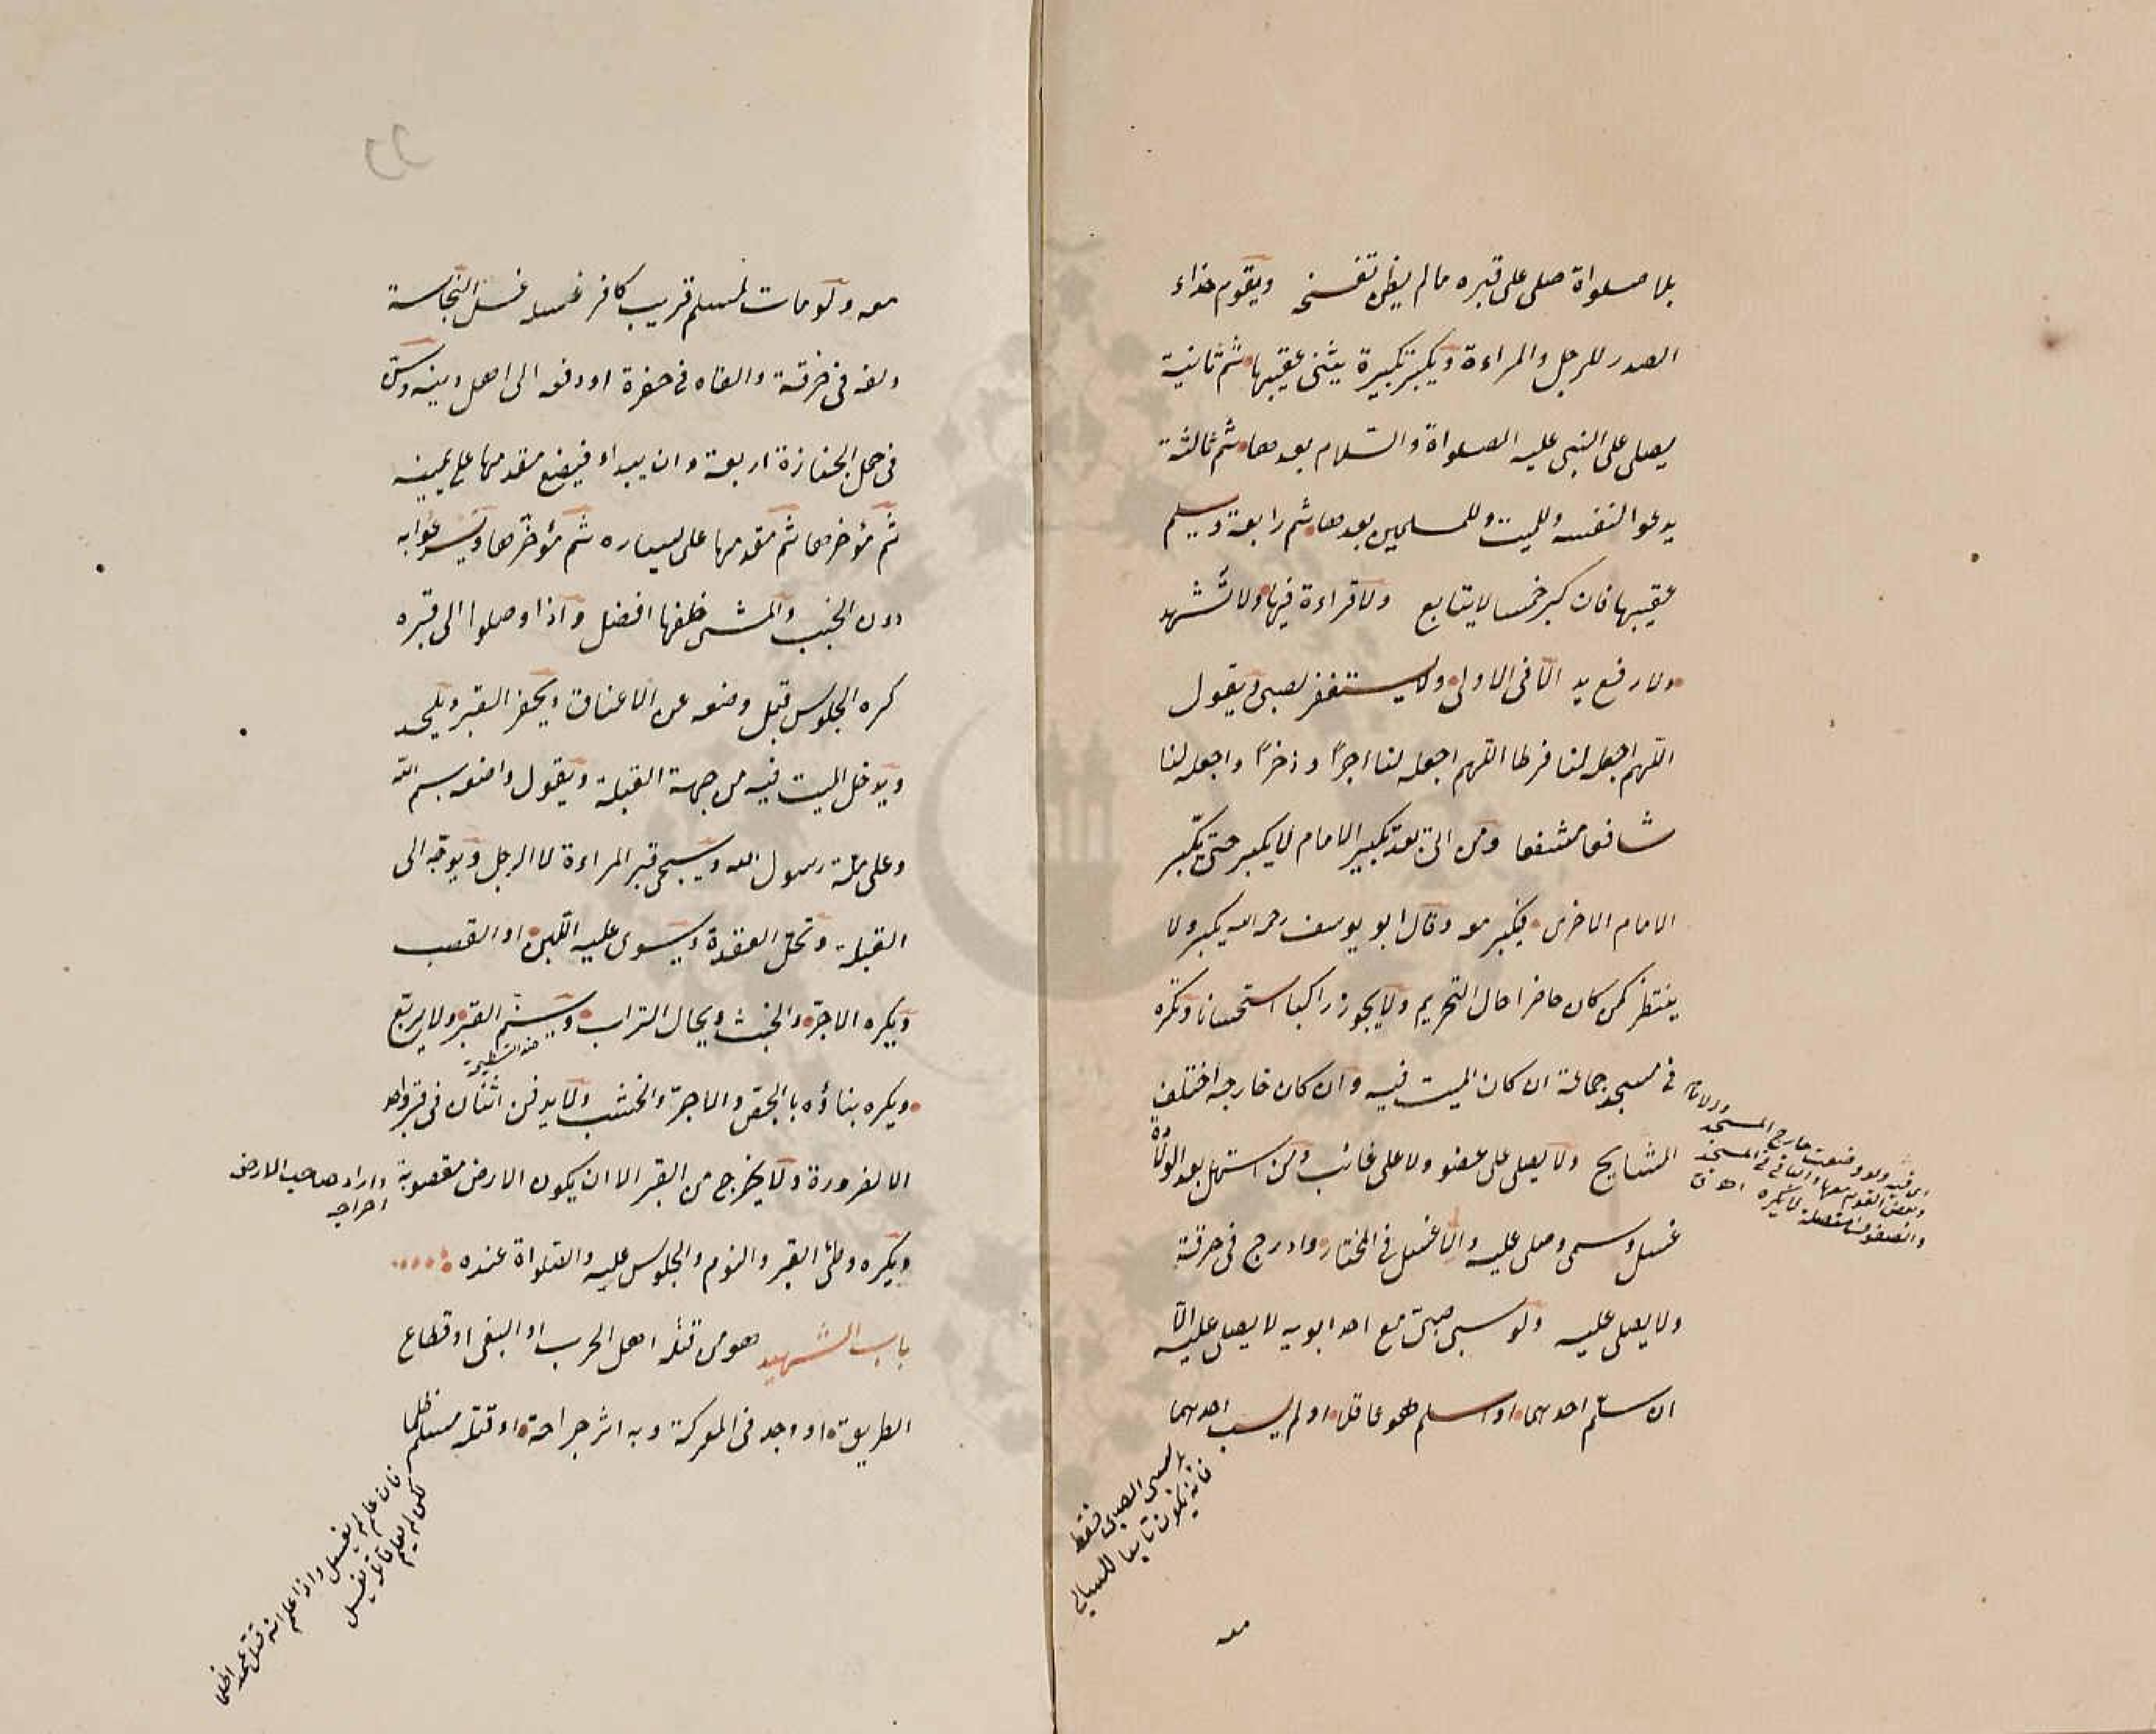 بلا صلواة صلى على قبره مالم يظن تفسخه ويقوم حذاء
الصدر للرجل والمراءة ويكبر تكبيرة يثنى عقيبها ثم ثانية
يصلى على النبى عليه الصلواة والسّلام بعدها ثم ثالثة
يدعوا لنفسه وللميت وللمسلمين بعدها ثم رابعة ويسلم
عقيبها فان كبر خمسا لا يتابع ولا قراءة فيها ولا تشهد
ولا رفع يد الّا فى الاولى ولا يستغفر لصبى ويقول
اللّهم اجعله لنا فرطا اللّهم اجعله لنا اجرًا و ذخرًا واجعله لنا
شافعا مشفعا ومن اتى بعد تكبير الامام لا يكبر حتى يكبّر
الامام الاخرى فيكبر معه وقال ابو يوسف رحمه الله يكبر ولا
ينتظر كمن كان حاضرا حال التحريم ولا يجوز راكبا استحسانا وتكره
فى مسجد جماعة ان كان الميت فيه وان كان خارجه اختلف
المشايخ ولا يصلى على عضو ولا على غائب ومن استهل بعد الولادة
غسل وسمى وصلى عليه والا غسل فى المختار وادرج فى خرقة
ولا يصلى عليه ولو سبى صبىّ مع احد ابويه لا يصلى عليه الّا
ان سلّم احدهما او اسلم هو عاقلا او لم يسب احدهما
ولو وضعت خارج المسجد
وبعض القوم معها والباقى فى المسجد
والصفوف متصلة لا يكره
بل سبى الصبى فقط
فانه يكون تابعا للسابى
معه
معه ولو مات لمسلم قريب كافر غسله غسل النجاسة
ولفه فى خرقة والقاه فى حفرة او دفعه الى اهل دينه وسنّ
فى حمل الجنازة اربعة وان يبداء فيضع مقدمها على يمينه
ثم مؤخرها ثم مقدمها على يساره ثم مؤخرها ويسرعوا به
دون الخبب والمشى خلفها افضل واذا وصلوا الى قبره
كره الجلوس قبل وضعه عن الاعناق ويحفر القبر ويلحد
ويدخل الميت فيه من جهة القبلة ويقول واضعه بسم الله
وعلى ملّة رسول الله ويسجى قبر المراءة لا الرجل ويوجّه الى
القبلة وتحل العقدة ويسوى عليه اللّبن او القصب
ويكره الاجرّ والخشب ويهال التراب ويسنّم القبر ولا يربّع
ويكره بناؤه بالجص والاجرّ والخشب ولا يدفن اثنان فى قبر واحد
الا لضرورة ولا يخرج من القبر الا ان يكون الارض مغصوبة واراد صاحب الارض
اخراجه
ويكره وطئ القبر والنوم والجلوس عليه والصّلواة عنده
باب الشهيد هو من قتله اهل الحرب او البغى او قطاع
الطريق او وجد فى المعركة وبه اثر جراحة او قتله مسلم ظلما
فان علم لم يغسل واذا علم انه قتل عمدا ظلما
لكن لم يعلم قاتله يغسل